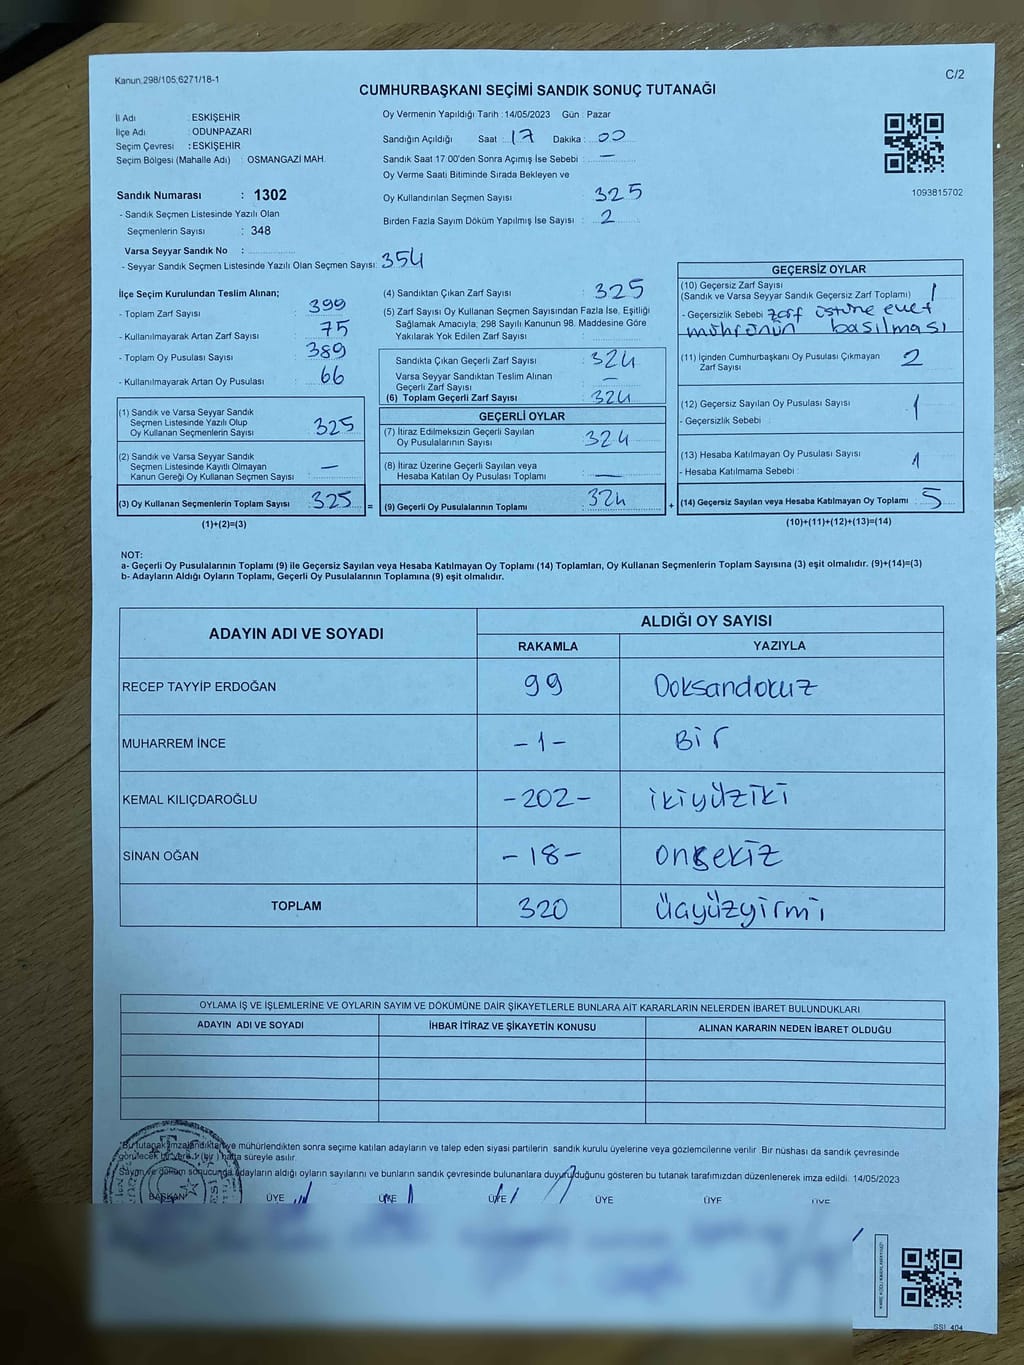 Kanun.298/105,6271/18-1
C/2
CUMHURBAŞKANI SEÇİMİ SANDIK SONUÇ TUTANAĞI
İl Adı : ESKİŞEHİR
İlçe Adı : ODUNPAZARI
Seçim Çevresi : ESKİŞEHİR
Seçim Bölgesi (Mahalle Adı) : OSMANGAZİ MAH.
Sandık Numarası : 1302
- Sandık Seçmen Listesinde Yazılı Olan
Seçmenlerin Sayısı : 348
Varsa Seyyar Sandık No :
- Seyyar Sandık Seçmen Listesinde Yazılı Olan Seçmen Sayısı: 354
Oy Vermenin Yapıldığı Tarih : 14/05/2023 Gün : Pazar
Sandığın Açıldığı Saat : 17 Dakika : 00
Sandık Saat 17 00'den Sonra Açımış İse Sebebi : —
Oy Verme Saati Bitiminde Sırada Bekleyen ve
Oy Kullandırılan Seçmen Sayısı : 325
Birden Fazla Sayım Döküm Yapılmış İse Sayısı : 2
1093815702
İlçe Seçim Kurulundan Teslim Alınan;
- Toplam Zarf Sayısı : 399
- Kullanılmayarak Artan Zarf Sayısı : 75
- Toplam Oy Pusulası Sayısı : 389
- Kullanılmayarak Artan Oy Pusulası : 66
(1) Sandık ve Varsa Seyyar Sandık
Seçmen Listesinde Yazılı Olup
Oy Kullanan Seçmenlerin Sayısı : 325
(2) Sandık ve Varsa Seyyar Sandık
Seçmen Listesinde Kayıtlı Olmayan
Kanun Gereği Oy Kullanan Seçmen Sayısı : —
(3) Oy Kullanan Seçmenlerin Toplam Sayısı : 325
(1)+(2)=(3)
(4) Sandıktan Çıkan Zarf Sayısı : 325
(5) Zarf Sayısı Oy Kullanan Seçmen Sayısından Fazla İse, Eşitliği
Sağlamak Amacıyla, 298 Sayılı Kanunun 98. Maddesine Göre
Yakılarak Yok Edilen Zarf Sayısı :
Sandıkta Çıkan Geçerli Zarf Sayısı : 324
Varsa Seyyar Sandıktan Teslim Alınan
Geçerli Zarf Sayısı : —
(6) Toplam Geçerli Zarf Sayısı : 324
GEÇERLİ OYLAR
(7) İtiraz Edilmeksizin Geçerli Sayılan
Oy Pusulalarının Sayısı : 324
(8) İtiraz Üzerine Geçerli Sayılan veya
Hesaba Katılan Oy Pusulası Toplamı : —
= (9) Geçerli Oy Pusulalarının Toplamı : 324
GEÇERSİZ OYLAR
(10) Geçersiz Zarf Sayısı
(Sandık ve Varsa Seyyar Sandık Geçersiz Zarf Toplamı) : 1
- Geçersizlik Sebebi : zarf üstüne evet
mührünün basılması
(11) İçinden Cumhurbaşkanı Oy Pusulası Çıkmayan
Zarf Sayısı : 2
(12) Geçersiz Sayılan Oy Pusulası Sayısı : 1
- Geçersizlik Sebebi :
(13) Hesaba Katılmayan Oy Pusulası Sayısı : 1
- Hesaba Katılmama Sebebi :
+ (14) Geçersiz Sayılan veya Hesaba Katılmayan Oy Toplamı : 5
(10)+(11)+(12)+(13)=(14)
NOT:
a- Geçerli Oy Pusulalarının Toplamı (9) ile Geçersiz Sayılan veya Hesaba Katılmayan Oy Toplamı (14) Toplamları, Oy Kullanan Seçmenlerin Toplam Sayısına (3) eşit olmalıdır. (9)+(14)=(3)
b- Adayların Aldığı Oyların Toplamı, Geçerli Oy Pusulalarının Toplamına (9) eşit olmalıdır.
ADAYIN ADI VE SOYADI
ALDIĞI OY SAYISI
RAKAMLA YAZIYLA
RECEP TAYYİP ERDOĞAN 99 Doksandokuz
MUHARREM İNCE -1- Bir
KEMAL KILIÇDAROĞLU -202- ikiyüziki
SİNAN OĞAN -18- onsekiz
TOPLAM 320 üçyüzyirmi
OYLAMA İŞ VE İŞLEMLERİNE VE OYLARIN SAYIM VE DÖKÜMÜNE DAİR ŞİKAYETLERLE BUNLARA AİT KARARLARIN NELERDEN İBARET BULUNDUKLARI
ADAYIN ADI VE SOYADI İHBAR İTİRAZ VE ŞİKAYETİN KONUSU ALINAN KARARIN NEDEN İBARET OLDUĞU
Bu tutanak imzalandıktan ve mühürlendikten sonra seçime katılan adayların ve talep eden siyasi partilerin sandık kurulu üyelerine veya gözlemcilerine verilir. Bir nüshası da sandık çevresinde
görülecek bir yere 1 (bir) hafta süreyle asılır.
Sayım ve döküm sonucunda adayların aldığı oyların sayılarını ve bunların sandık çevresinde bulunanlara duyurulduğunu gösteren bu tutanak tarafımızdan düzenlenerek imza edildi. 14/05/2023
BAŞKAN ÜYE ÜYE ÜYE ÜYE ÜYE ÜYE